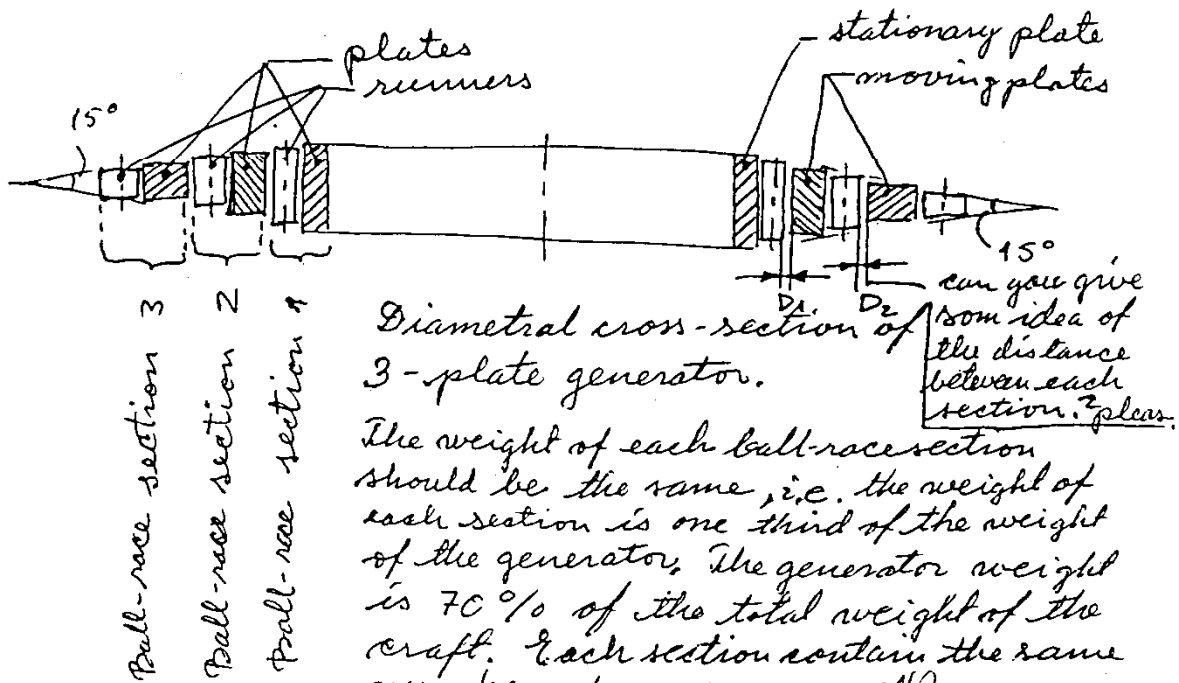 plates
runners
stationary plate
moving plates
15°
15°
D1
D2
can you give
som idea of
the distance
between each
section.? pleas.
Ball-race section 3
Ball-race section 2
Ball-race section 1
Diametral cross-section of
3-plate generator.
The weight of each ball-race section
should be the same, i.e. the weight of
each section is one third of the weight
of the generator. The generator weight
is 70% of the total weight of the
craft. Each section contain the same